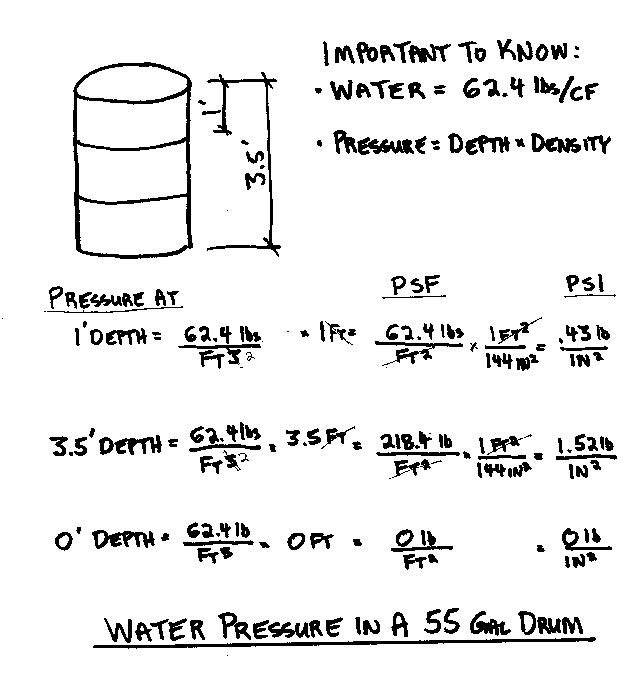 IMPORTANT TO KNOW:
• WATER = 62.4 lbs/CF
• PRESSURE = DEPTH × DENSITY
1'
3.5'
PRESSURE AT PSF PSI
1' DEPTH = 62.4 lbs/FT3 2 × 1 FT = 62.4 lbs/FT2 × 1 FT2/144 IN2 = .43 lb/IN2
3.5' DEPTH = 62.4 lbs/FT3 2 × 3.5 FT = 218.4 lb/FT2 × 1 FT2/144 IN2 = 1.52 lb/IN2
0' DEPTH = 62.4 lb/FT3 × 0 FT = 0 lb/FT2 = 0 lb/IN2
WATER PRESSURE IN A 55 GAL DRUM